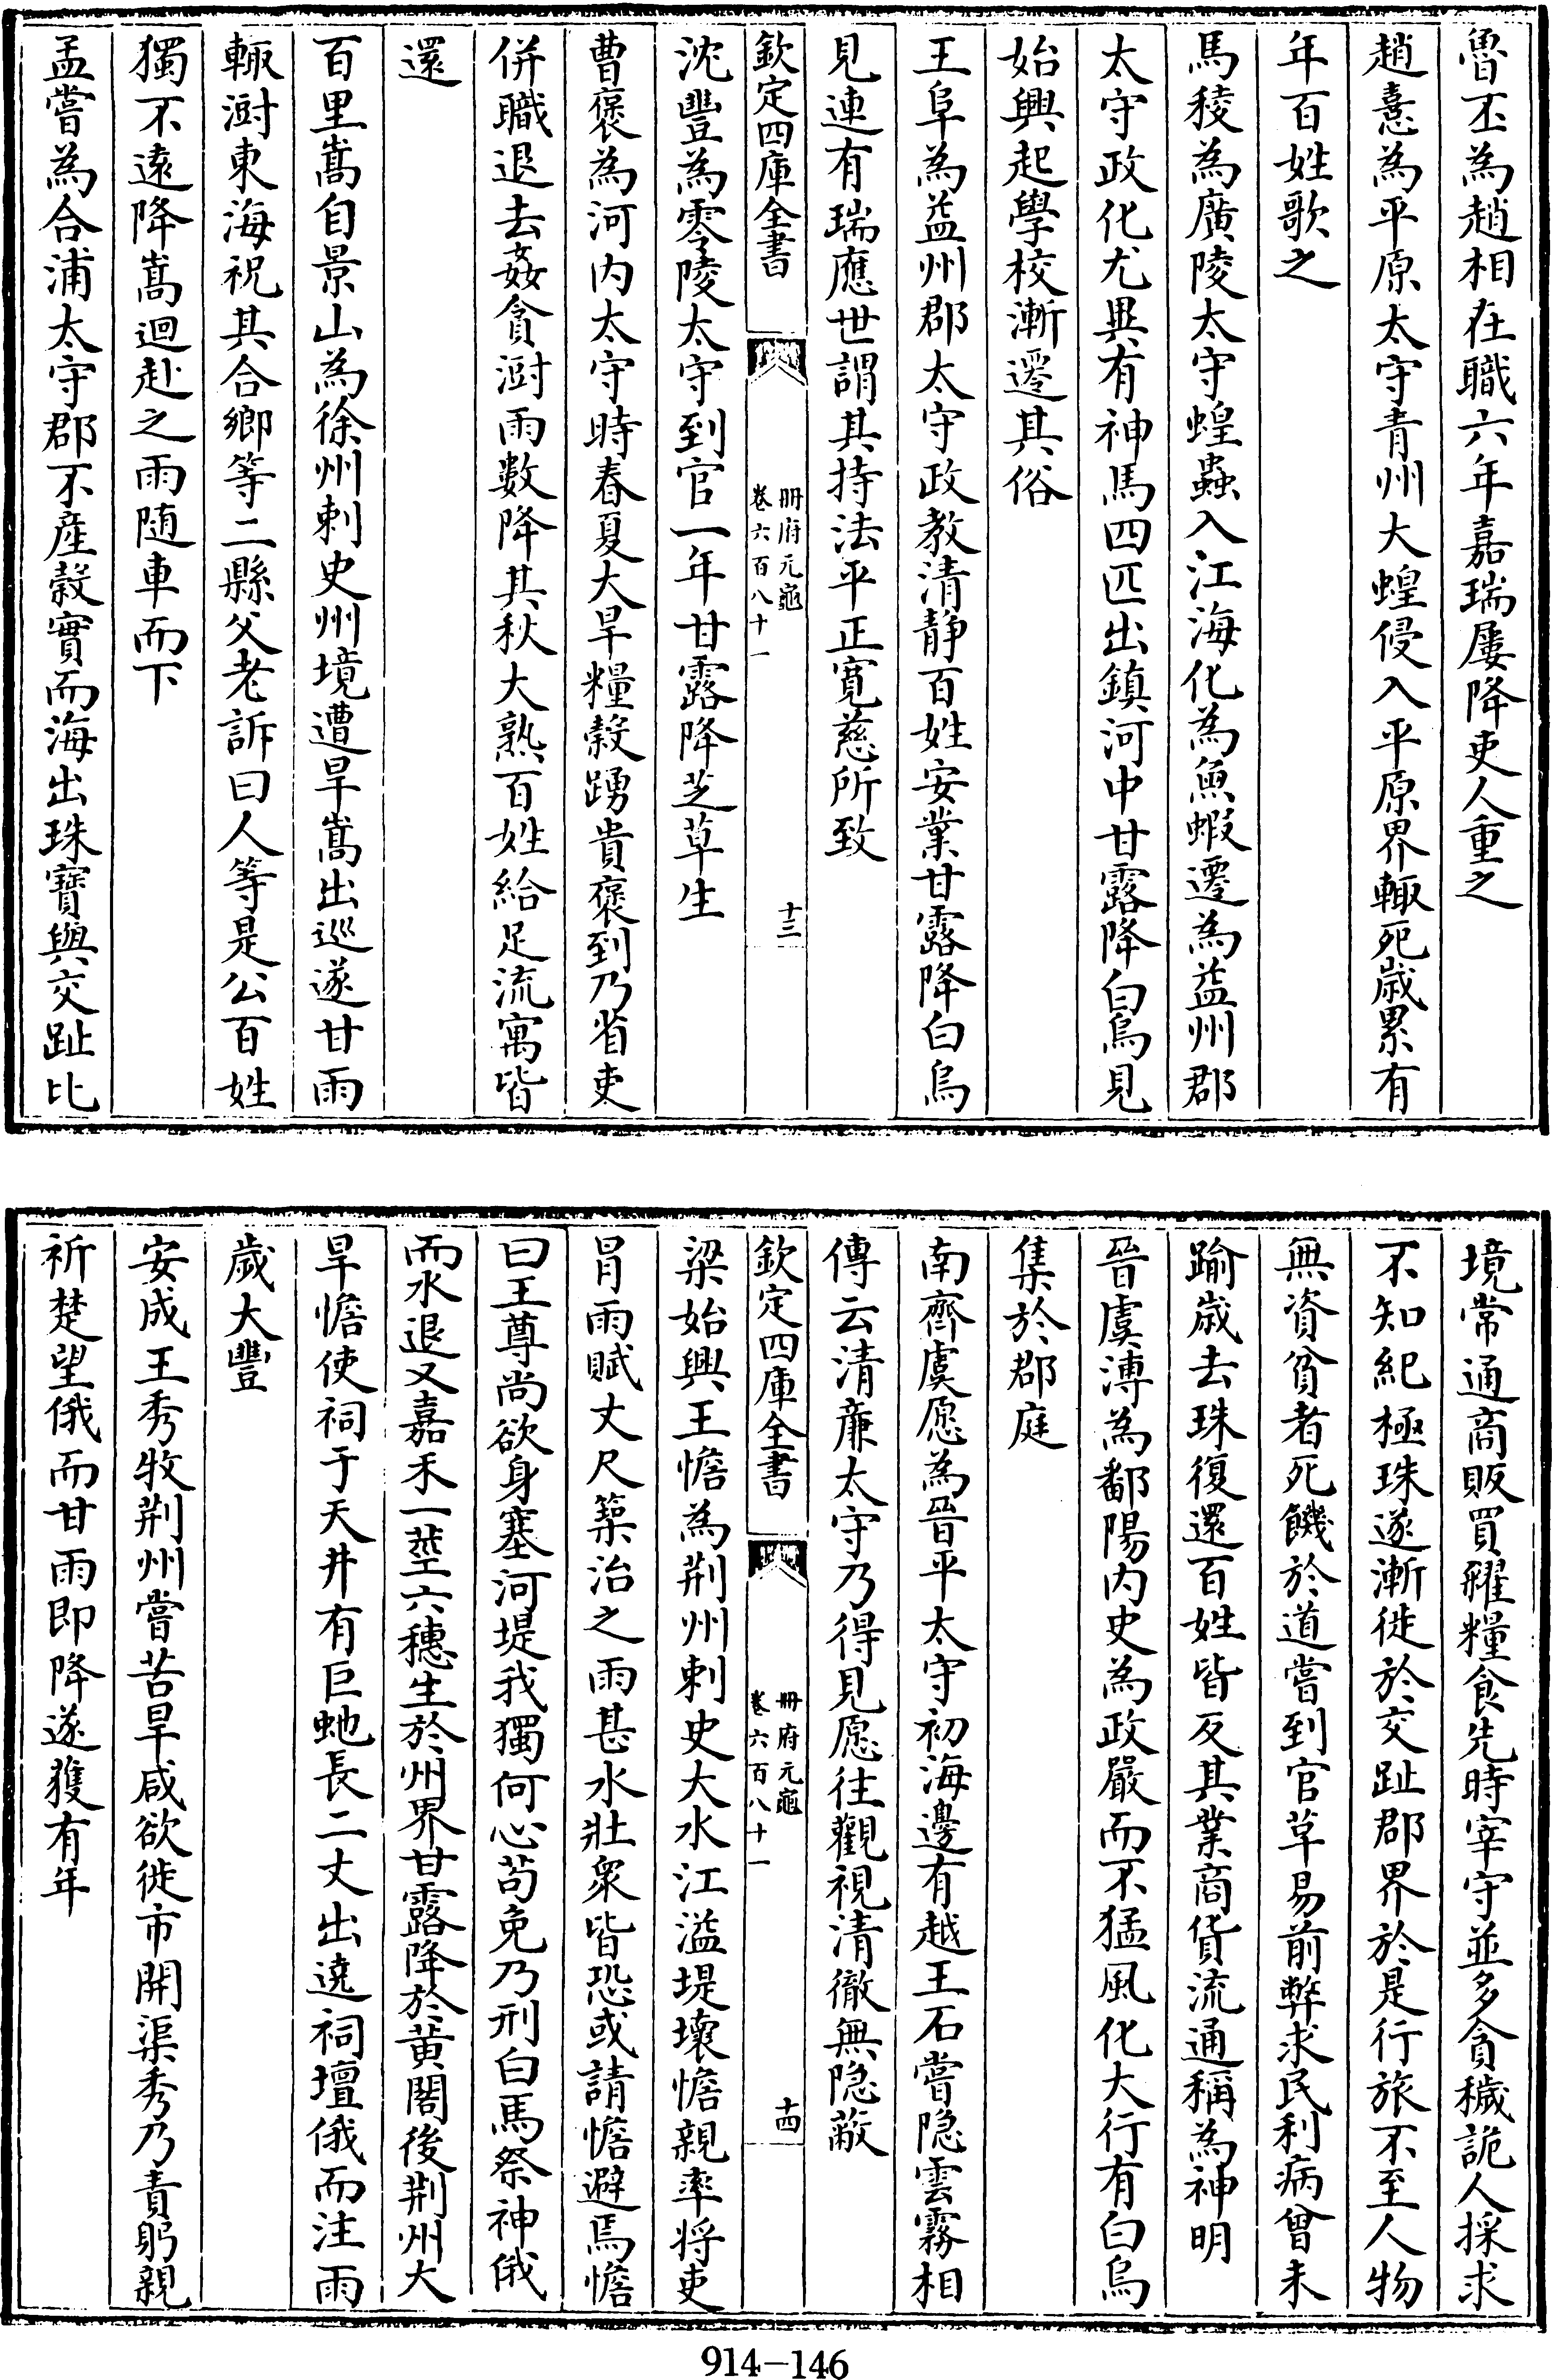 魯丕為趙相在職六年嘉瑞屢降吏人重之
趙憙為平原太守青州大蝗侵入平原界輙死歳累有
年百姓歌之
馬稜為廣陵太守蝗蟲入江海化為魚蝦遷為益州郡
太守政化尤異有神馬四匹出鎮河中甘露降白烏見
始興起學校漸遷其俗
王阜為益州郡太守政教清靜百姓安業甘露降白烏
見連有瑞應世謂其持法平正寛慈所致
欽定四庫全書
冊府元龜
卷六百八十一
十三
沈豐為零陵太守到官一年甘露降芝草生
曹褒為河内太守時春夏大旱糧穀踴貴褒到乃省吏
併職退去姦貪澍雨數降其秋大熟百姓給足流寓皆
還
百里嵩自景山為徐州刺史州境遭旱嵩出巡遂甘雨
輙澍東海祝其合鄉等二縣父老訴曰人等是公百姓
獨不遠降嵩迴赴之雨随車而下
孟嘗為合浦太守郡不産穀實而海出珠寶與交趾比
境常通商販買糴糧食先時宰守並多貪穢詭人採求
不知紀極珠遂漸徙於交趾郡界於是行旅不至人物
無資貧者死餓於道嘗到官草易前弊求民利病曾未
踰歳去珠復還百姓皆反其業商貨流通稱為神明
晉虞溥為鄱陽内史為政嚴而不猛風化大行有白烏
集於郡庭
南齊虞愿為晉平太守初海邊有越王石嘗隐雲霧相
傳云清亷太守乃得見愿往觀視清徹無隐蔽
欽定四庫全書
冊府元龜
卷六百八十一
十四
梁始興王憺為荆州刺史大水江溢堤壞憺親率将吏
冒雨賦丈尺築治之雨甚水壯衆皆恐或請憺避焉憺
曰王尊尚欲身塞河堤我獨何心苟免乃刑白馬祭神俄
而水退又嘉禾一莖六穗生於州界甘露降於黄閣後荆州大
旱憺使祠于天井有巨虵長二丈出遶祠壇俄而注雨
歳大豐
安成王秀牧荆州嘗苦旱咸欲徙市開渠秀乃責躬親
祈楚望俄而甘雨即降遂獲有年
914-146